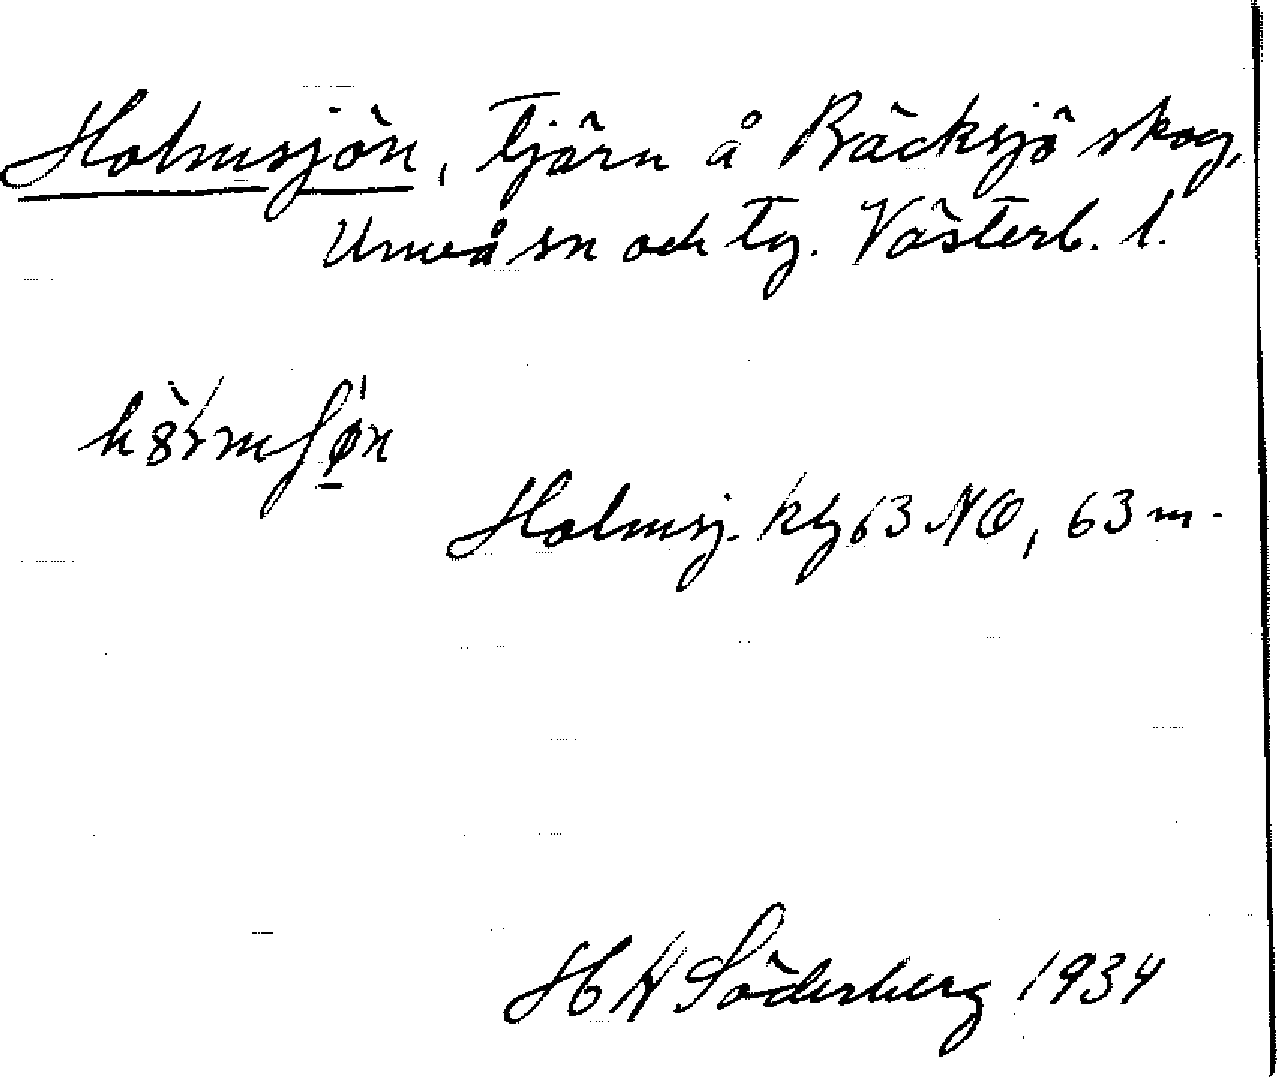 Holmsjön, tjärn å Bäcksjö skog,
Umeå sn och tg. Västerb. l.
Holmsj. kbl 63 NO, 63 m.
H Söderberg 1934